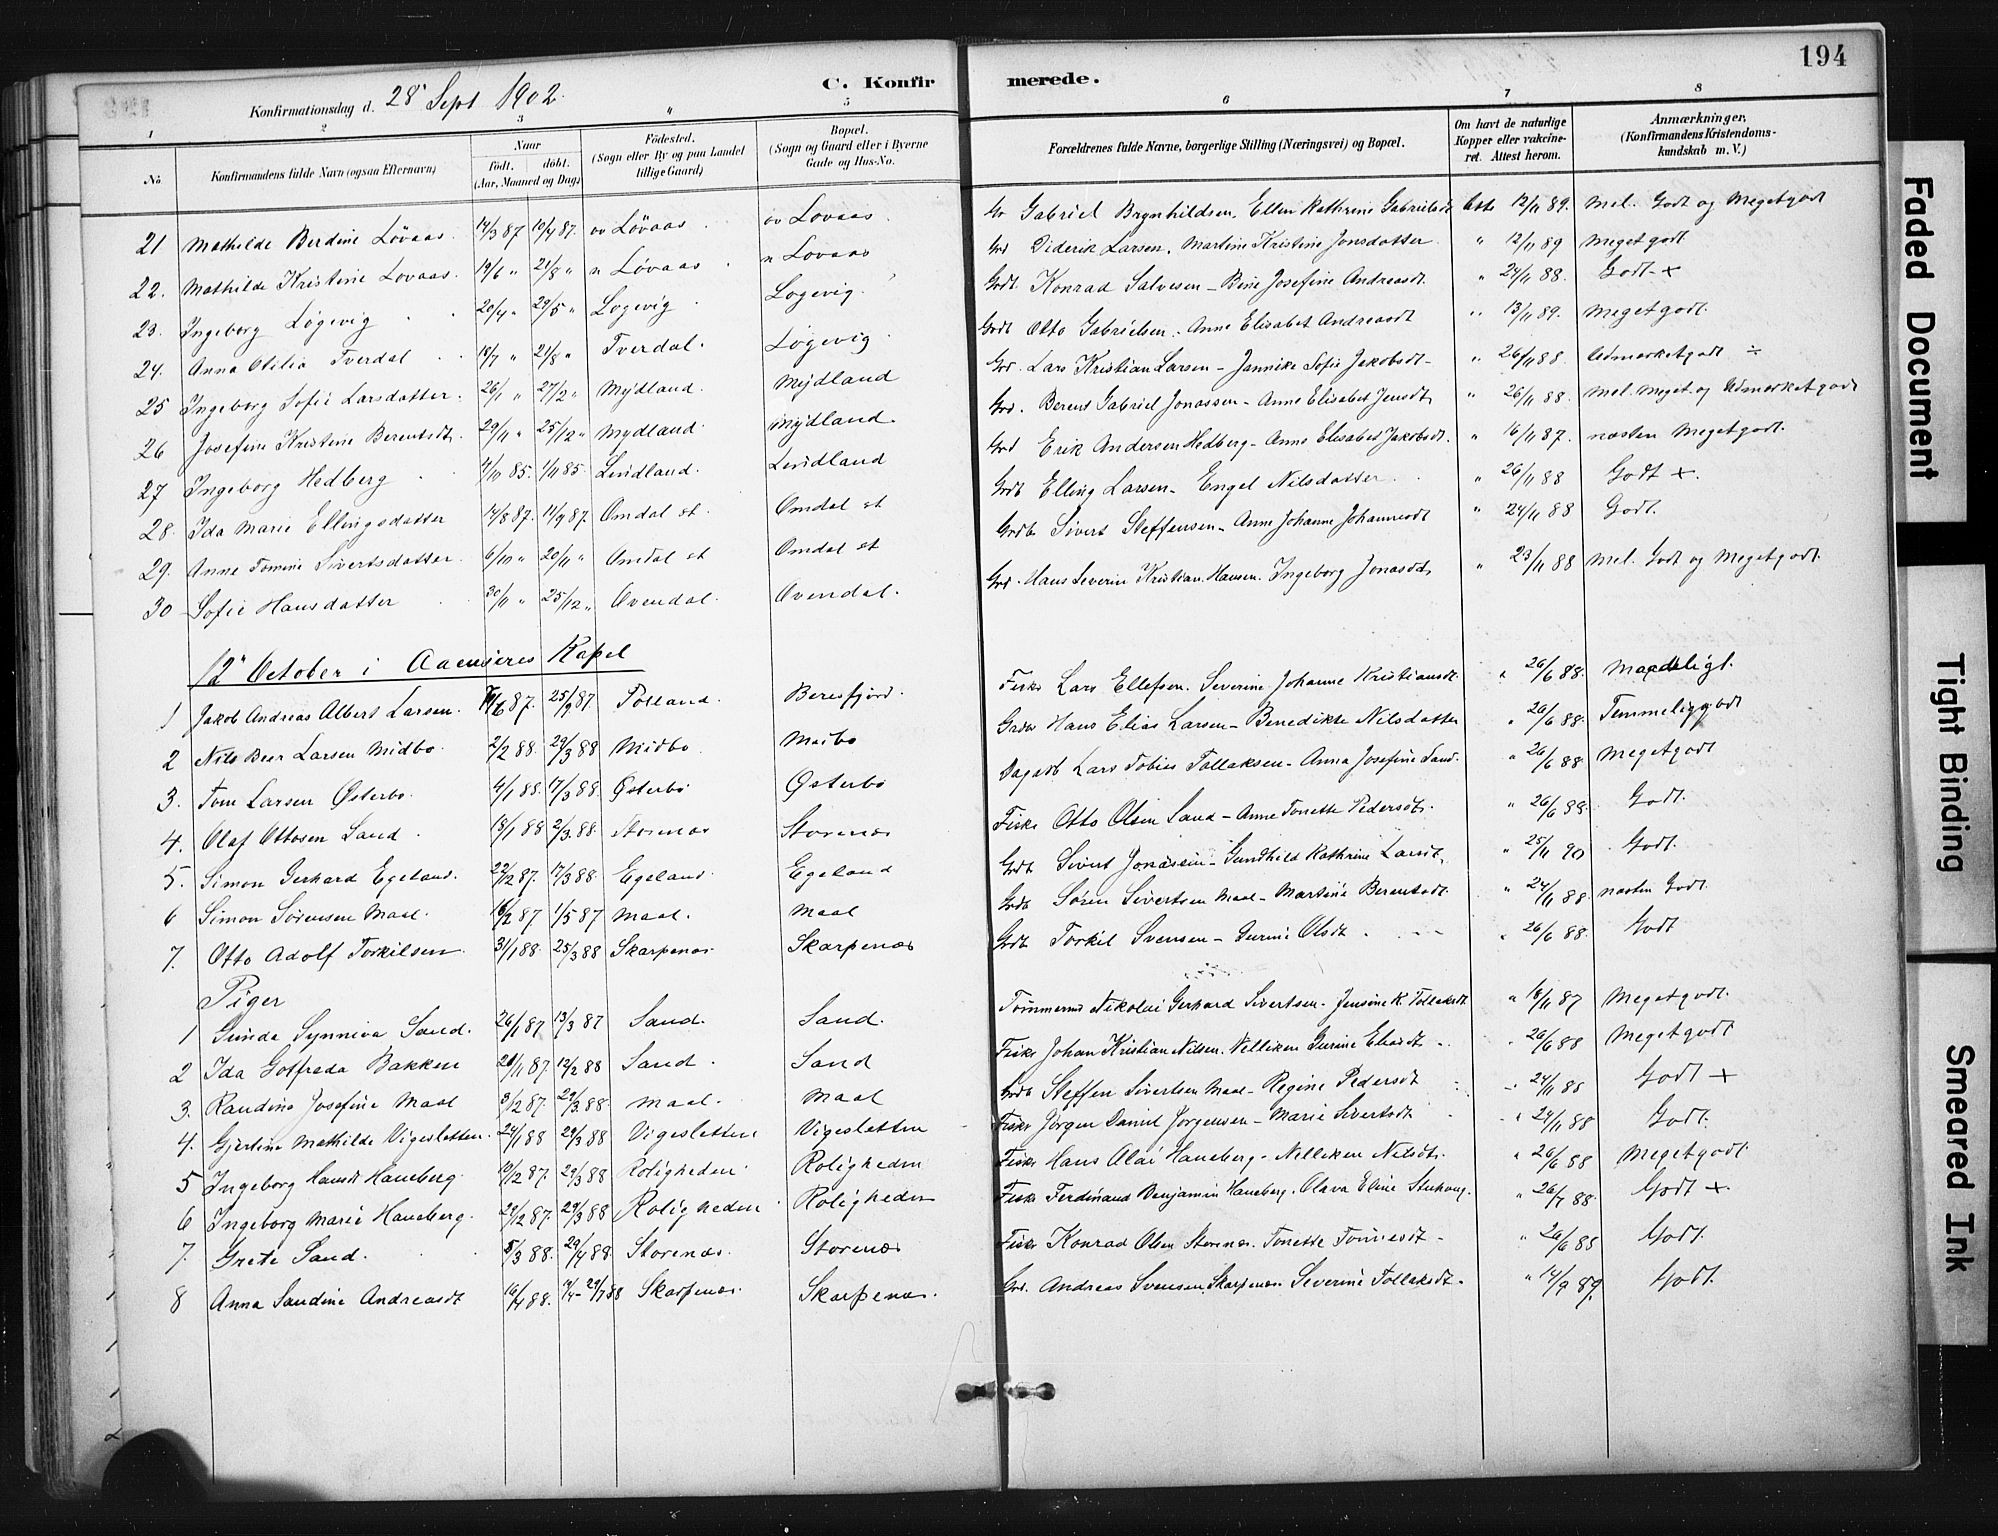 194
C. Konfir merede.
Konfirmationsdag d. 28 Sept 1902.
1 2 3 " 5 6 7 8
No Konfirmandens fulde Navn (ogsaa Efternavn) Naar født. døbt. (Aar, Maaned og Dag) Fødested. (Sogn eller By og paa Landet tillige Gaard) Bopæl. (Sogn og Gaard eller i Byerne Gade og Hus-No. Forældrenes fulde Navne, borgerlige Stilling (Næringsvei) og Bopæl. Om havt de naturlige Kopper eller vakcineret. Attest herom. Anmærkninger. (Konfirmandens Kristendomskundskab m. V.)
21 Mathilde Berdine Løvaas. 14/3 87 10/4 87. øv Løvaas. øv Lovaas. Gr Gabriel Brynhildsen. Ellen Kathrine Gabrielsdt Atts 12/11 89. Mel. Godt og Megetgodt
22. Mathilde Kristine Lovaas. 19/6 " 21/8 " n Løvaas. n Lovaas Grd Diderik Larsen. Martine Kristine Jonsdatter. " 12/11 89 Megetgodt
23. Ingeborg Løgevig 20/4 " 29/5 " Logevig Logevig. Grdt. Konrad Salvesen - Bine Josefine Andreasdt. " 24/11 88. Godt +
24. Anna Otilia Tverdal 18/7 " 21/8 " Tverdal. Løgevig Grdt Otto Gabrielsen. Anne Elisabet Andreasdt " 13/11 89. Megetgodt.
25 Ingeborg Sofie Larsdatter. 26/1 " 27/2 " Mydland. Mydland Grd. Lars Kristian Larsen - Jannike Sofie Jakobsdt - " 26/11 88 Udmerketgodt ÷
26 Josefine Kristine Berentsdt. 29/11 " 25/12 " Mydland. Mydland. Grd. Berent Gabriel Jonassen - Anne Elisabet Jensdt, " 26/11 88. Mel. Meget. og Udmerketgodt
27 Ingeborg Hedberg 4/10 85. 1/11 85. Lindland. Lindland Grd Erik Andersen Hedberg - Anne Elisabet Jakobsdt. " 16/11 87. næsten Megetgodt.
28. Ida Marie Ellingsdatter 14/8 87. 11/9 87. Omdal st. Omdal st Grdb Elling Larsen - Engel Nilsdatter " 26/11 88 Godt +.
29. Anne Tomine Sivertsdatter. 6/10 " 20/11 " Omdal st Omdal st Grdb Sivert Steffensen - Anne Johanne Johannesdt " 24/11 88 Godt.
30 Sofie Hansdatter 30/11 " 25/12 " Ovendal. Ovendal. Grd. Hans Severin Kristian Hansen. Ingeborg Jonasdt, " 23/11 88 Mel. Godt og Megetgodt.
12" October i Aaensires Kapel
1 Jakob Andreas Albert Larsen. 87. 25/9 87. Tolland. Beresfjord. Fisk. Lars Ellefsen. Severine Johanne Kristiansdt. " 26/6 88. Maadeligt.
2 Nils Beer Larsen Midbø. 2/2 88. 29/3 88 Midbø. Meibø Grdb Hans Elias Larsen - Benedikte Nilsdatter " 26/6 88. Temmeliggodt
3. Tom Larsen Østerbø. 4/1 88. 17/3 88. Østerbø Østerbø Dagarb Lars Tobias Tollaksen - Anna Josefine Sand. " 26/6 88 Megetgodt
4. Olaf Ottosen Sand 18/1 88 2/3. 88. Storenæs Storenæs Fisk. Otto Olsen Sand - Anne Tonette Pedersdt. " 26/6 88. Godt.
5. Simon Gerhard Egeland. 22/12 87. 17/3 88. Egeland. Egeland Grdt Sivert Jonassen - Gundhild Kathrine Larsdt, " 25/11 90 Godt.
6 Simon Sørensen Maal. 16/2 87 1/5 87 Maal. Maal Grdb Søren Sivertsen Maal - Martine Berentsdt. " 24/11 88 næsten Godt.
7. Otto Adolf Torkilsen 31/1 88. 25/3 88 Skarpenæs Skarpenæs Grdt Torkil Svensen - Gurine Olsdt. " 26/6 88. Godt
Piger
1 Gunda Synneva Sand. 26/1 87. 13/3 87 Sand. Sand. Tømmermd Nikolai Gerhard Sivertsen - Jensine K. Tollaksdt " 18/11 87 Megetgodt.
2 Ida Gotfreda Bakken 20/11 87. 12/2 88 Sand. Sand Fisk. Johan Kristian Nilsen. Nelliken Gurine Eliasdt - " 26/6 88 Megetgodt
3. Randine Josefine Maal 3/12 87. 29/3. 88. Maal. Maal Grdb Steffen Sivertsen Maal - Regine Pedersdt " 24/11 88 Godt +
4. Gjertine Mathilde Vigesletten. 24/1 88 29/3 88 Vigesletten Vigesletten Fisk. Jørgen Daniel Jørgensen - Marie Sivertsdt - " 24/11 88 Godt.
5 Ingeborg Hansdt Haneberg 10/2 87. 29/3 88 Roligheden Roligheden Fisk. Hans Olai Haneberg - Nelliken Nilsdt. " 26/6 88 Megetgodt.
6 Ingeborg Marie Haneberg. 29/12 87. 29/3 88 Roligheden Roligheden Fisk. Ferdinand Benjamin Haneberg. Olava Eline " 26/7 88. Godt +
7. Grete Sand. 5/3 88. 29/4 88. Storenæs. Storenæs Fisk. Konrad Olsen Storenæs. Tonette Tonnesdt - " 26/6 88 Godt.
8 Anna Sandine Andreasdt 16/4 88. 17/4 - 29/7 88 Skarpenæs. Skarpenæs. Grd. Andreas Svensen Skarpenæs Severine Tollaksdt. " 14/9 89. Godt.
Faded Document
Tight Binding
Smeared Ink